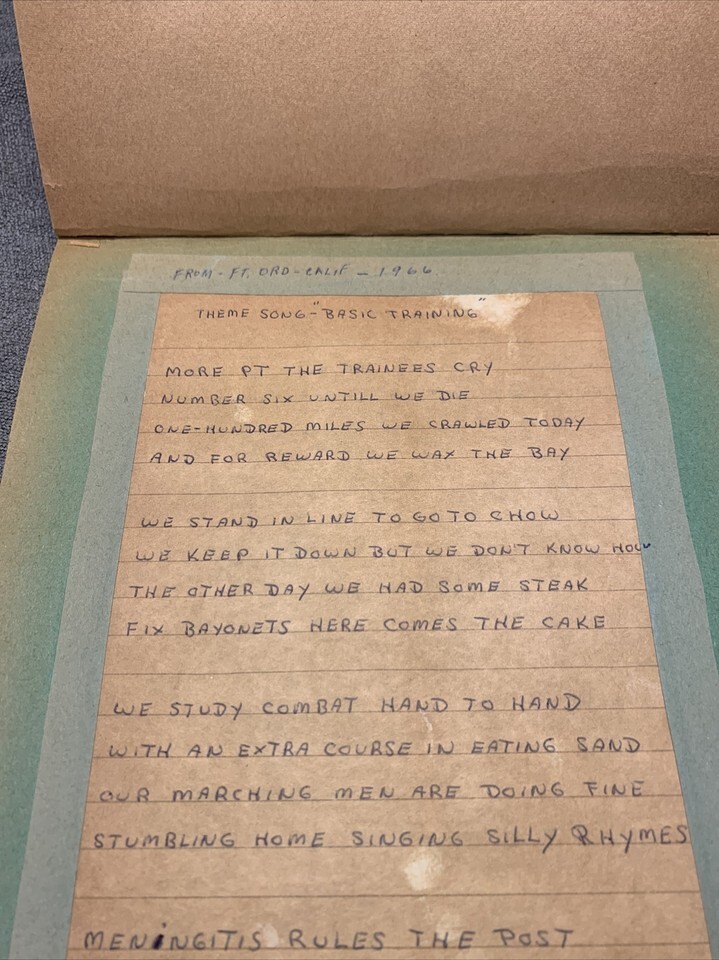 FROM - FT. ORD - CALIF - 1966
THEME SONG - "BASIC TRAINING"
MORE PT THE TRAINEES CRY
NUMBER SIX UNTILL WE DIE
ONE-HUNDRED MILES WE CRAWLED TODAY
AND FOR REWARD WE WAX THE BAY
WE STAND IN LINE TO GO TO CHOW
WE KEEP IT DOWN BUT WE DON'T KNOW HOW
THE OTHER DAY WE HAD SOME STEAK
FIX BAYONETS HERE COMES THE CAKE
WE STUDY COMBAT HAND TO HAND
WITH AN EXTRA COURSE IN EATING SAND
OUR MARCHING MEN ARE DOING FINE
STUMBLING HOME SINGING SILLY RHYMES
MENINGITIS RULES THE POST